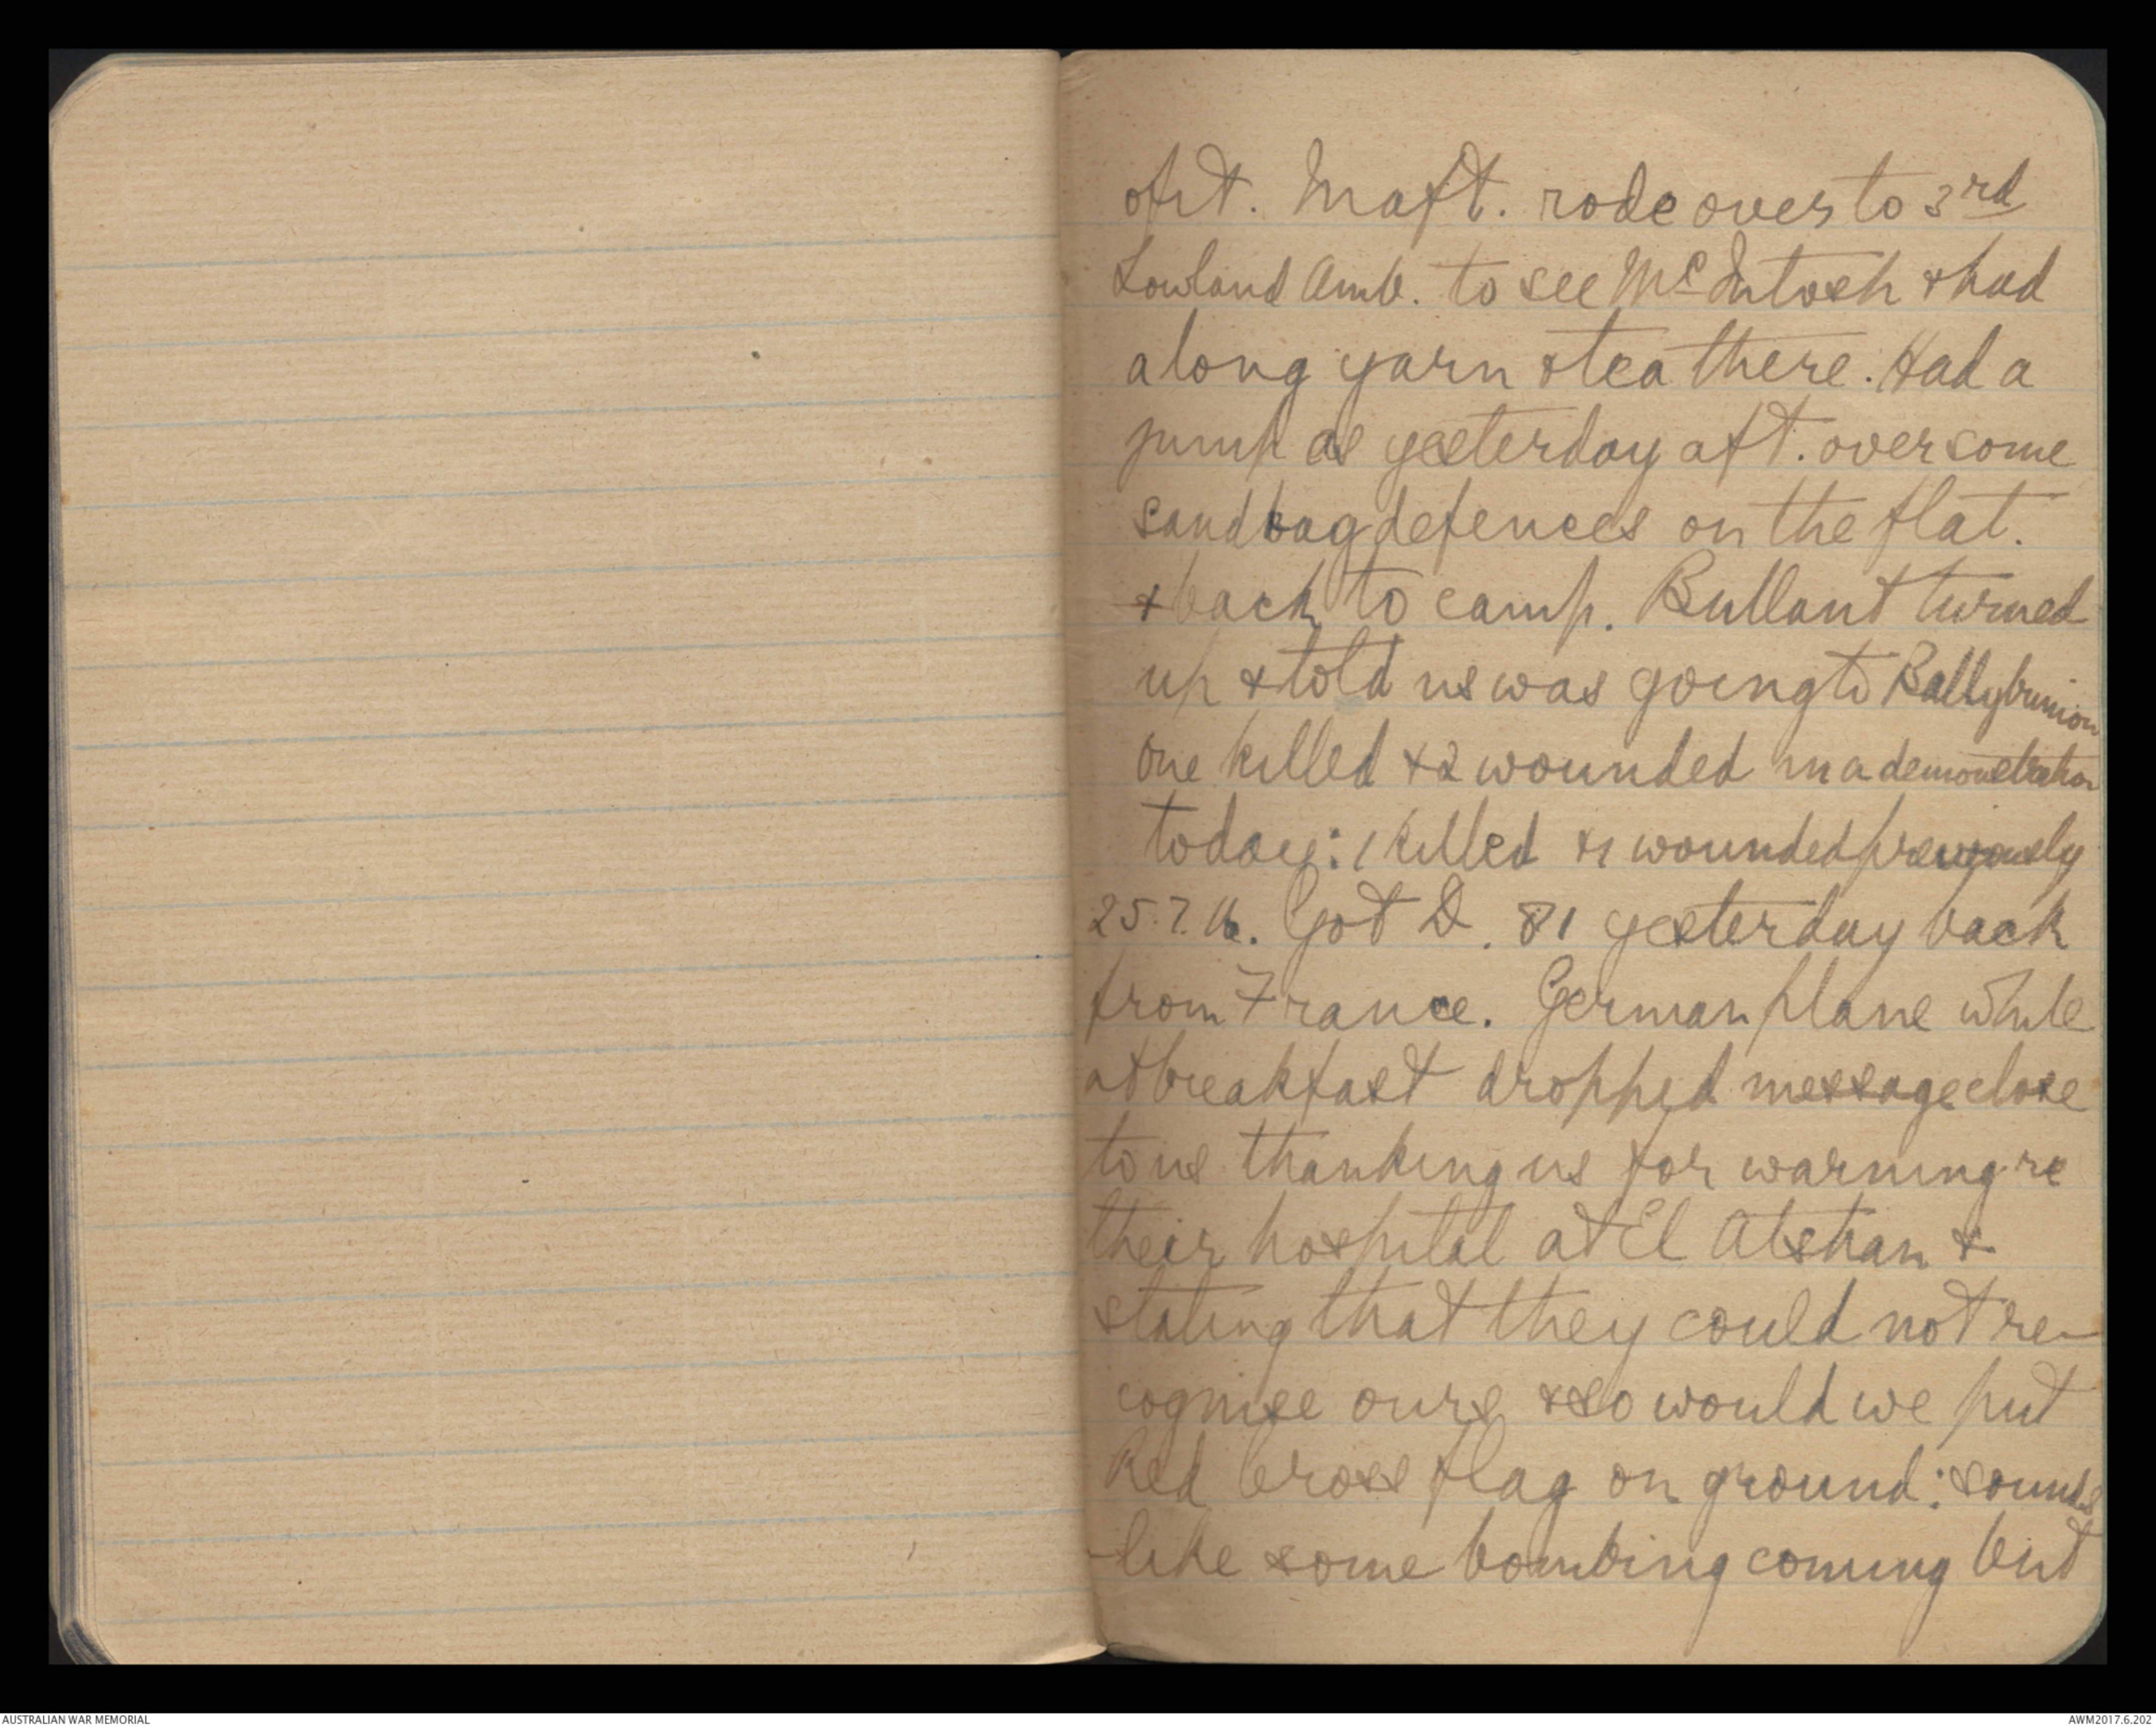 of it. In aft. rode over to 3rd
Lowland Amb. to see McIntosh & had
a long yarn & tea there. Had a
jump as yesterday aft. over some
sandbag defences on the flat.
& back to camp. Bullant turned
up & told us was going to Ballybunion
one killed & 2 wounded in a demonstration
today: 1 killed & 1 wounded previously
25.7.16. Got D. 81 yesterday back
from France. German plane while
at breakfast dropped message close
to us thanking us for warning re
their hospital at El Abshan &
stating that they could not re-
cognise ours & so would we put
Red Cross flag on ground: sounds
like some bombing coming but
AUSTRALIAN WAR MEMORIAL
AWM2017.6.202